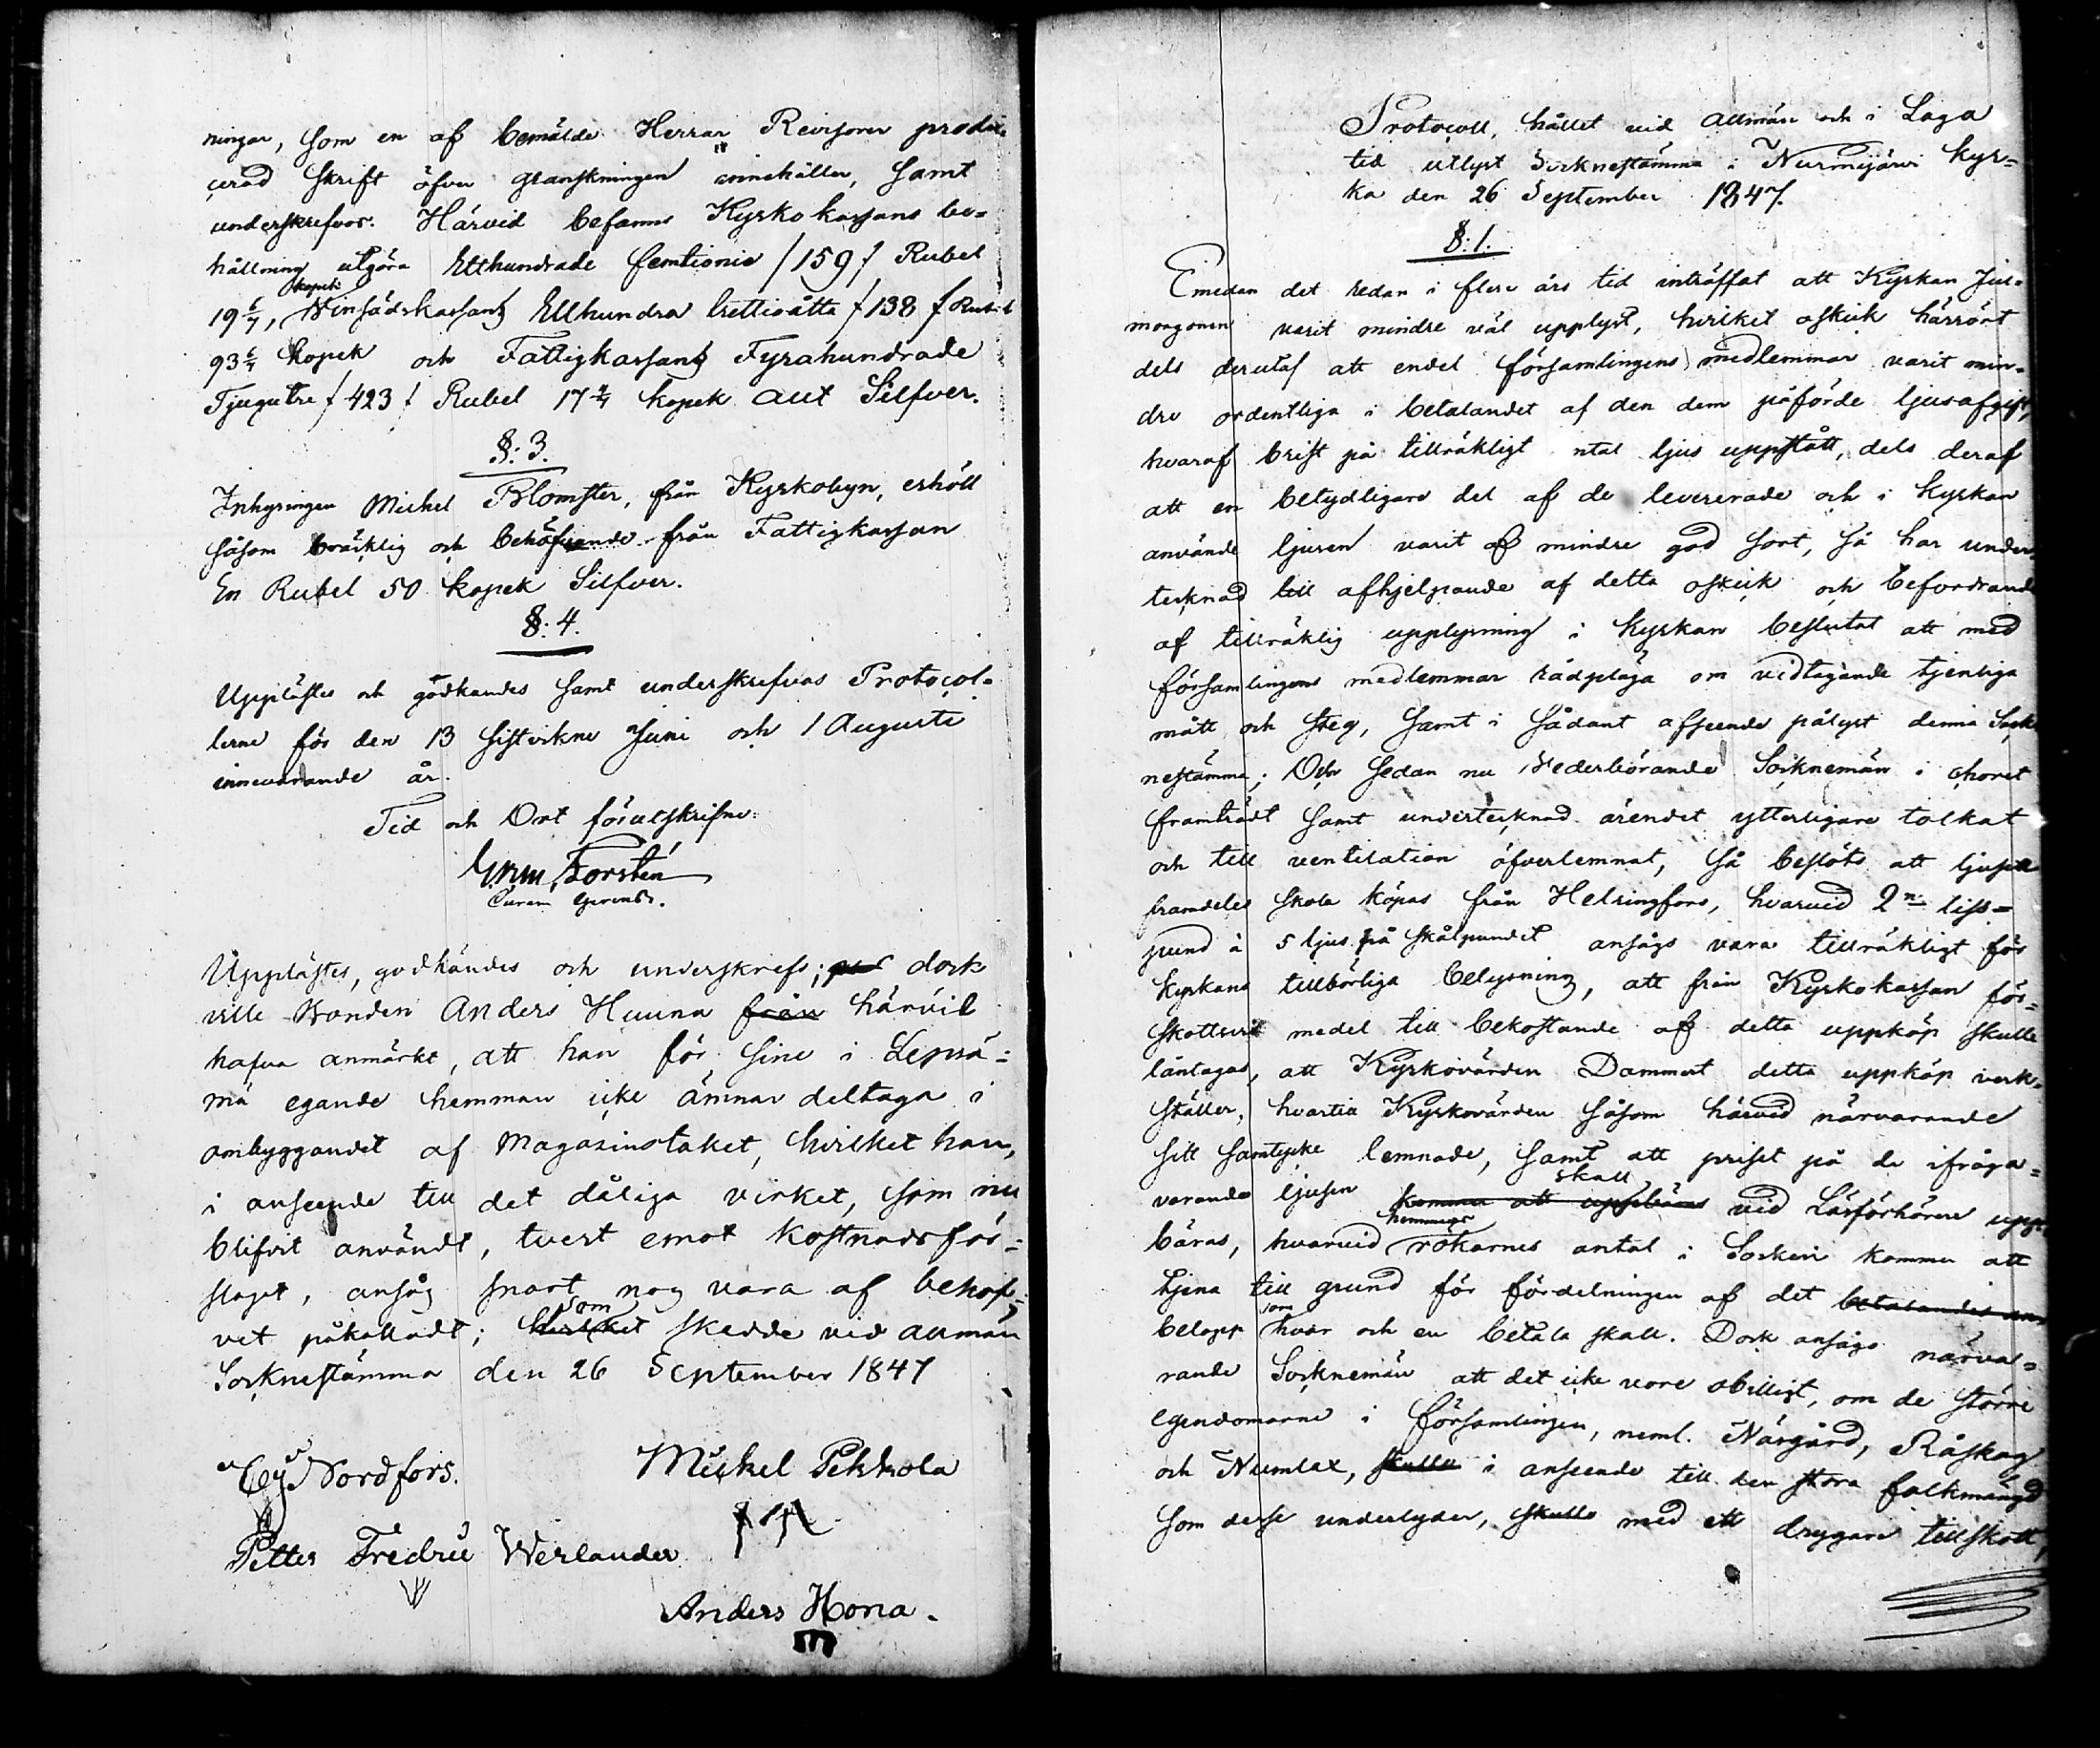 ningar, som en af bemälde Herrar Revisorer produ-
cerad skrift öfver granskningen innehåller, samt
underskrefvos. Härvid befanns Kyrkokassans be-
hållning utgöra Etthundrade femtionie /159/ Rubel
19 6/7 kopek, Winsädskassans Etthundra trettioåtta /138/ Rubel
93 6/7 kopek och Fattigkassans Fyrahundrade
Tjugutre /423/ Rubel 17 4/7 kopek allt Silfver.
§: 3.
Inhysingen Michel Blomster, från Kyrkobyn, erhöll
såsom bräcklig och behöfvande från Fattigkassan
En Rubel 50 kopek Silfver.
§: 4.
Upplästes och godkändes samt underskrefvos Protocol-
lerne för den 13 sistvikne Juni och 1 Augusti
innevarande år.
Tid och Ort förutskrifne:
Forstén
Curam gerens.
Upplästes, godkändes och underskrefs; dock
ville Bonden Anders Huuna från härvid
hafva anmärkt, att han för sine i Lepsä-
mä egande hemman icke ämnar deltaga i
ombyggandet af Magasinstaket, hvilket han,
i anseende till det dåliga virket, som nu
blifvit användt, tvert emot kostnadsför-
slaget, ansåg snart nog vara af behof-
vet påkalladt; hvilket som skedde vid allmän
Socknestämma den 26 September 1847
Nordfors. Mickel Pekkola
Petter Fredric Werlander
Anders Hona.
Protocoll, hållet vid allmän och i Laga
tid utlyst Socknestämma i Nurmijärvi kyr-
ka den 26 September 1847.
§: 1.
Emedan det redan i flere års tid inträffat att Kyrkan Jul-
morgonen varit mindre väl upplyst, hvilket oskick härrört
dels derutaf att endel församlingens medlemmar varit min-
dre ordentliga i betalandet af den dem påförde ljusafgift,
hvaraf brist på tillräkligt antal ljus uppstått, dels deraf
att en betydligare del af de levererade och i kyrkan
använde ljusen varit af mindre god sort, så har under-
tecknad till afhjelpande af detta oskick och befordrande
af tillräklig upplysning i kyrkan beslutat att med
församlingens medlemmar rådpläga om vidtagande tjenliga
mått och steg, samt i sådant afseende pålyst denna Sock-
nestämma; Och sedan nu Wederbörande Socknemän i choret
framträdt samt undertecknad ärendet ytterligare tolkat
och till ventilation öfverlemnat, så beslöts att ljusen
framdeles skola köpas från Helsingfors, hvarvid 2ne liss-
pund à 5 ljus på skålpundet ansågs vara tillräkligt för
kyrkans tillbörliga belysning, att från Kyrkokassan för-
skottsvis medel till bekostande af detta uppköp skulle
låntagas, att Kyrkovärden Dammert detta uppköp verk-
ställer, hvartill Kyrkovärden såsom härvid närvarande
sitt samtycke lemnade, samt att priset på de ifråga-
varande ljusen komma att uppbäras skall vid Läsförhören upp-
bäras, hvarvid hemmans rökarnes antal i Socken kommer att
tjena till grund för fördelningen af det betalandes
belopp som hvar och en betala skall. Dock ansågo närva-
rande Socknemän att det icke vore obilligt, om de större
egendomarne i församlingen, neml. Nårgård, Råskog
och Numlax, skulle i anseende till den stora folkmängd
som derse underlyder, skulle med ett drygare tillskott,